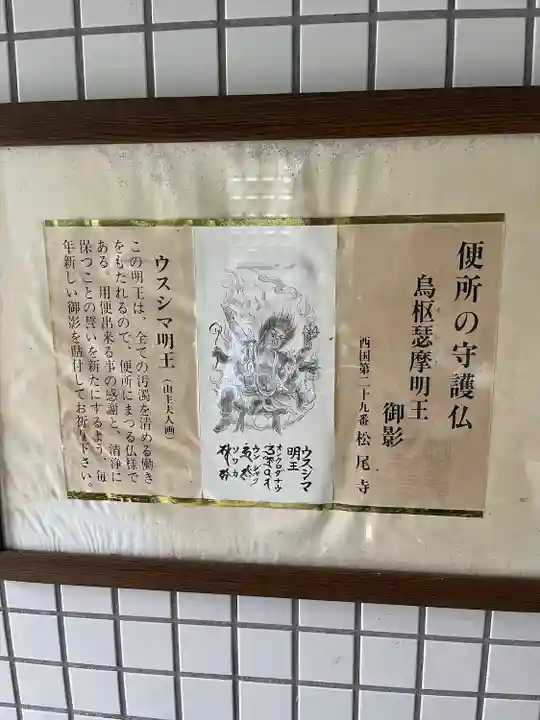 便所の守護仏
烏枢瑟摩明王
御影
西国第二十九番 松尾寺
ウスシマ
明王
オンクロダナウ
ウンジャク
ソワカ
ウスシマ明王(山主夫人画)
この明王は、全ての汚濁を清める働き
をもたれるので、便所にまつる仏様で
ある。用便出来る事の感謝と、清浄に
保つことの誓いを新たにするよう、毎
年新しい御影を貼付してお祈り下さい。